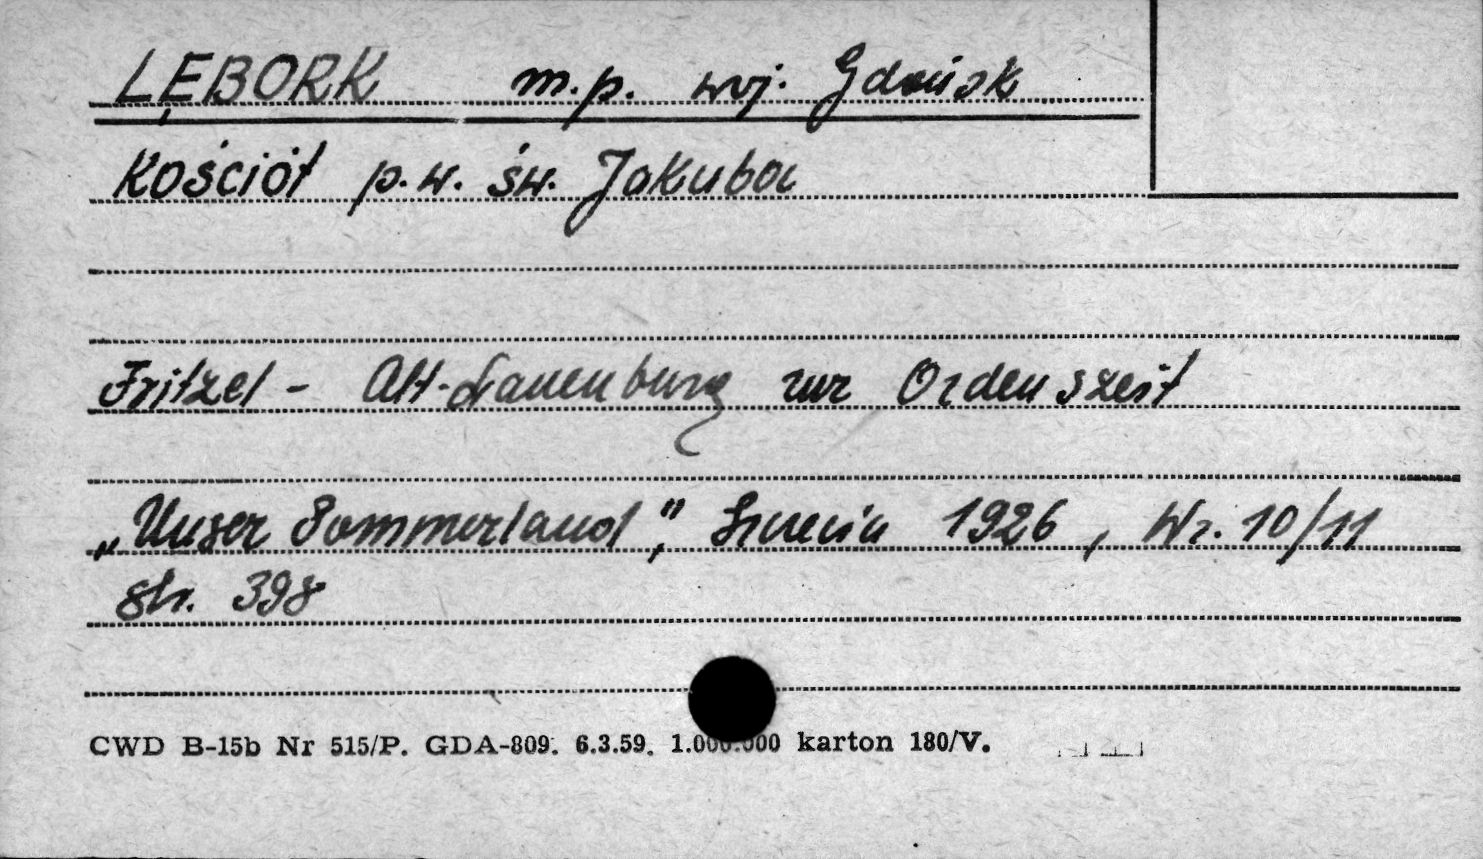 LĘBORK m.p. woj. Gdańsk
Kościół p.w. św. Jakuba
Fritzel - Alt-Lauenburg zur Ordenszeit
„Unser Pommerland," Szczecin 1926, Nr. 10/11
str. 398
CWD B-15b Nr 515/P. GDA-809. 6.3.59. 1.000.000 karton 180/V.